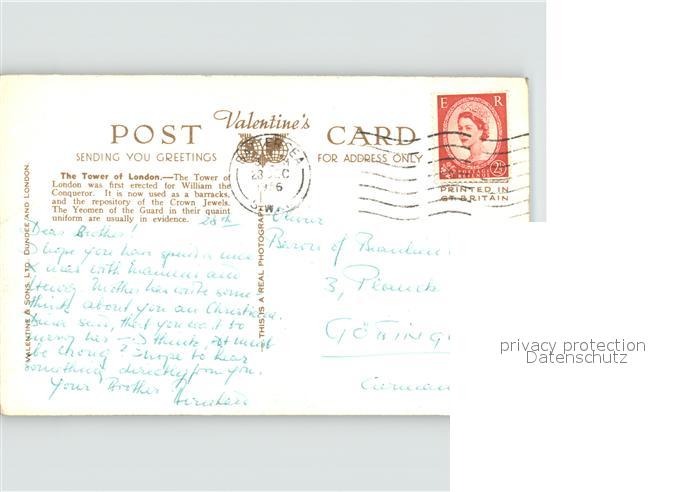 POST Valentine's CARD
SENDING YOU GREETINGS
FOR ADDRESS ONLY
The Tower of London.—The Tower of
London was first erected for William the
Conqueror. It is now used as a barracks,
and the repository of the Crown Jewels.
The Yeomen of the Guard in their quaint
uniform are usually in evidence.
VALENTINE & SONS, LTD., DUNDEE AND LONDON.
THIS IS A REAL PHOTOGRAPH
28th
Dear Brother!
I hope you have spend a nice
X mas with and
Mother has write some
about you on Christiane.
said, that you want to
marry her — I think, it must
be wrong? I hope to hear
something directly from you.
Your Brother
Baron of
3, Planck
GÖTTING
German
E R
POSTAGE
2½
28 DEC
1956
S.W.
PRINTED IN
GT. BRITAIN
privacy protection
Datenschutz